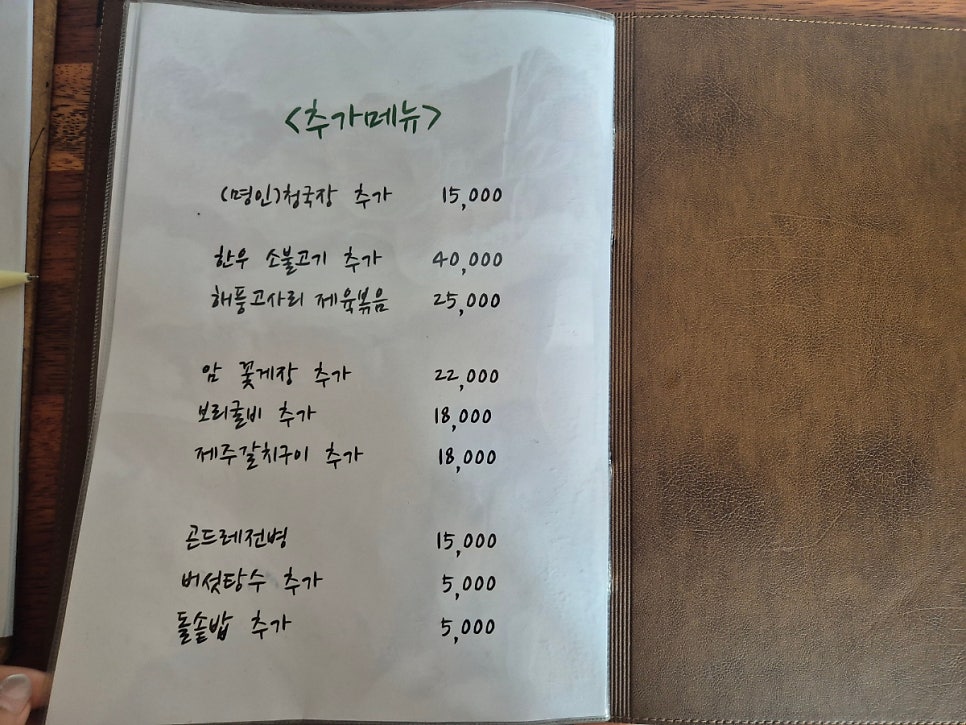 <추가메뉴>
(명인)청국장 추가 15,000
한우 소불고기 추가 40,000
해풍고사리 제육볶음 25,000
암 꽃게장 추가 22,000
보리굴비 추가 18,000
제주갈치구이 추가 18,000
곤드레전병 15,000
버섯탕수 추가 5,000
돌솥밥 추가 5,000